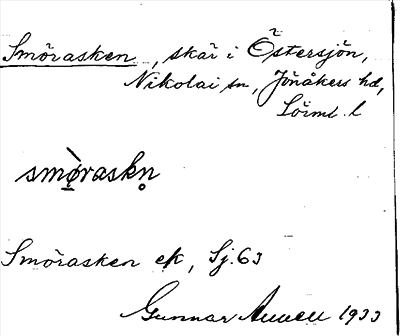 Smörasken, skär i Östersjön,
Nikolai sn, Jönåkers hd,
Sörml. l
smö̀raskn̥
Smörasken ek, Sj. 63
Gunnar 1933